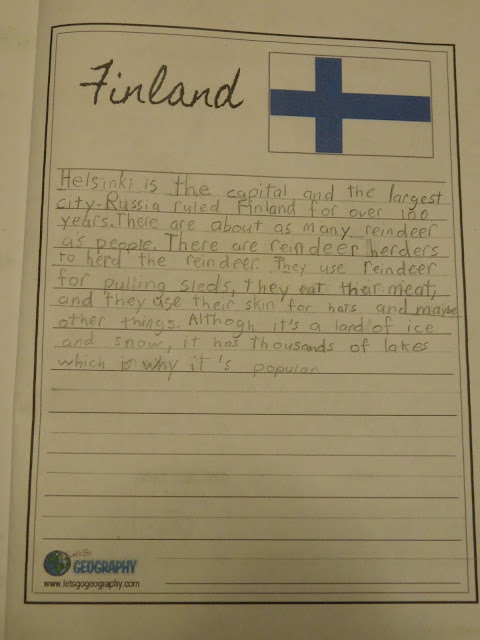 Finland
Helsinki is the capital and the largest
city. Russia ruled Finland for over 100
years. There are about as many reindeer
as people. There are reindeer herders
to herd the reindeer. They use reindeer
for pulling sleds, they eat their meat,
and they use their skin for hats and maybe
other things. Althogh it's a land of ice
and snow, it has thousands of lakes
which is why it's popular
Let's Go
GEOGRAPHY
www.letsgogeography.com